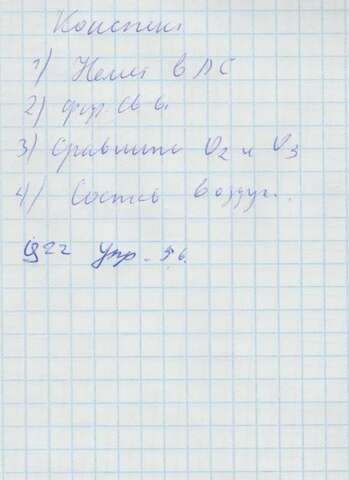 Конспект
1) Немет в ПС
2) физ. св-ва
3) Сравнить O2 и O3
4) Состав воздух.
§22 Упр. 5,6.